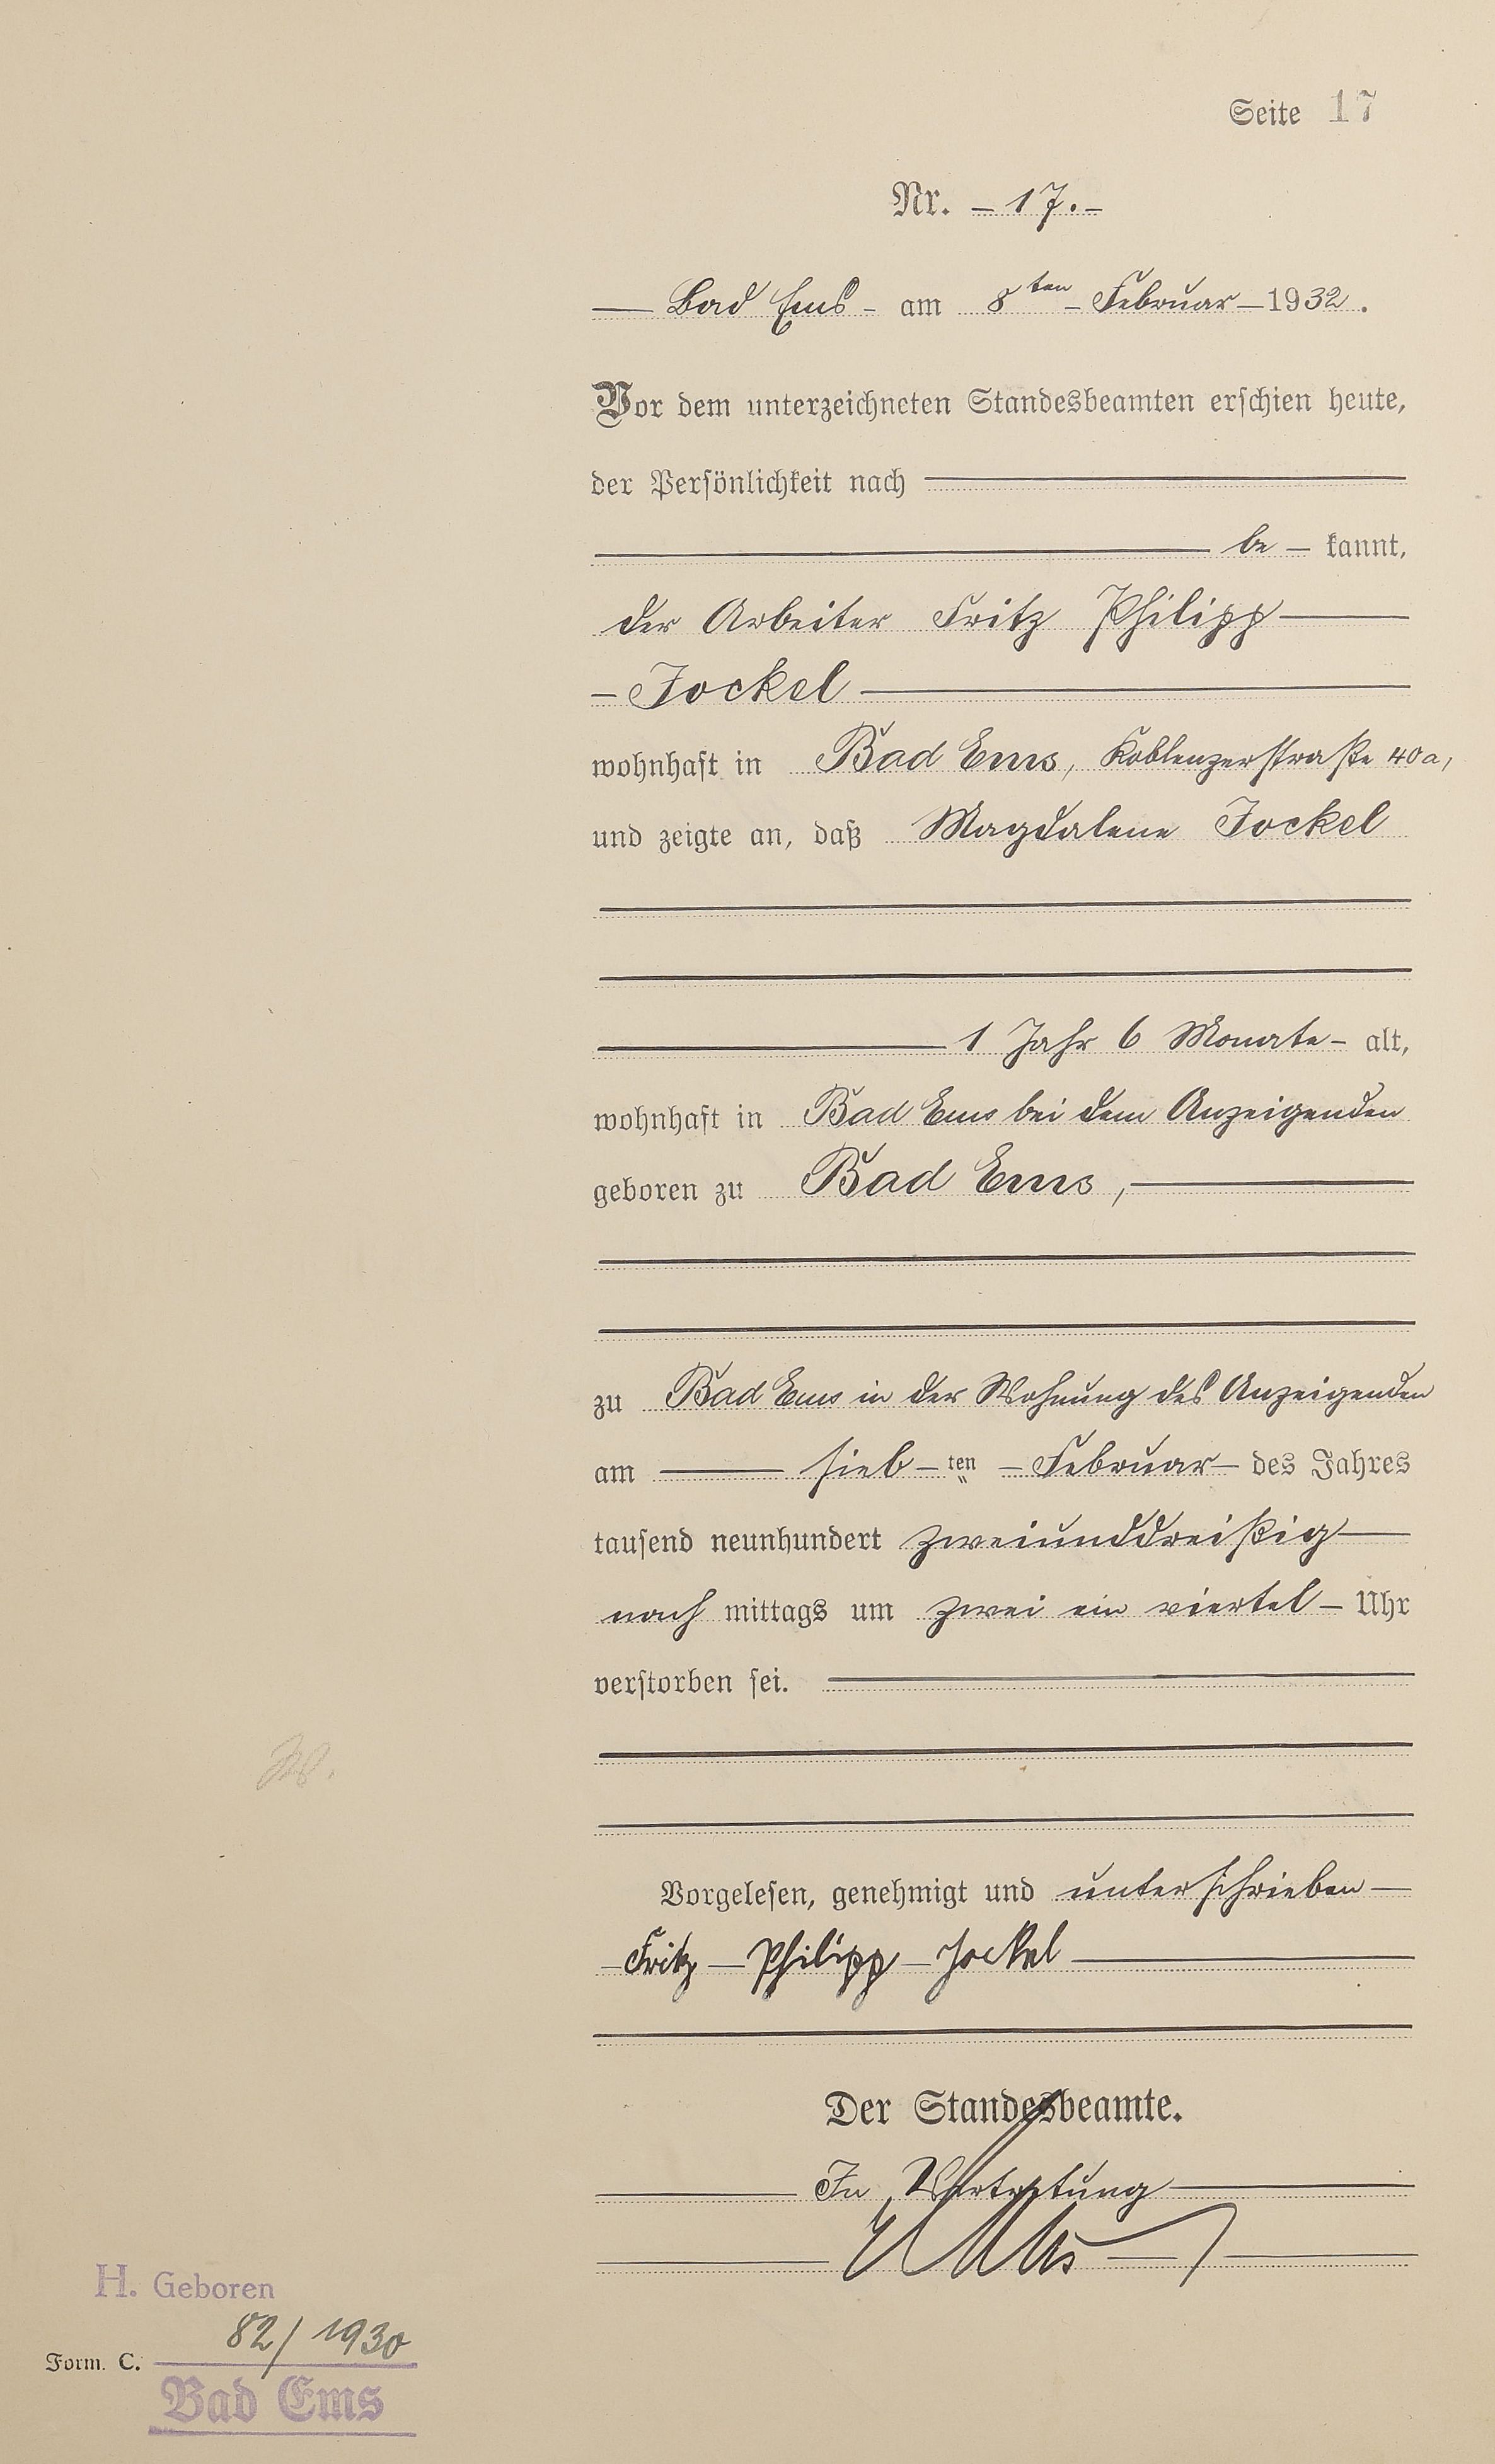 Seite 17
Nr. – 17. –
— Bad Ems – am 8ten – Februar – 1932.
Vor dem unterzeichneten Standesbeamten erschien heute,
der Persönlichkeit nach
be – kannt,
der Arbeiter Fritz Philipp —
– Jockel —
wohnhaft in Bad Ems, Koblenzerstraße 40a,
und zeigte an, daß Magdalene Jockel
1 Jahr 6 Monate – alt,
wohnhaft in Bad Ems bei dem Anzeigenden
geboren zu Bad Ems, —
zu Bad Ems in der Wohnung des Anzeigenden
am — sieb – ten – Februar – des Jahres
tausend neunhundert zweiunddreißig —
nach mittags um zwei ein viertel – Uhr
verstorben sei. —
W.
Vorgelesen, genehmigt und unterschrieben —
– Fritz – Philipp – Jockel —
Der Standesbeamte.
— In Vertretung —
H. Geboren
82/1930
Form. C.
Bad Ems